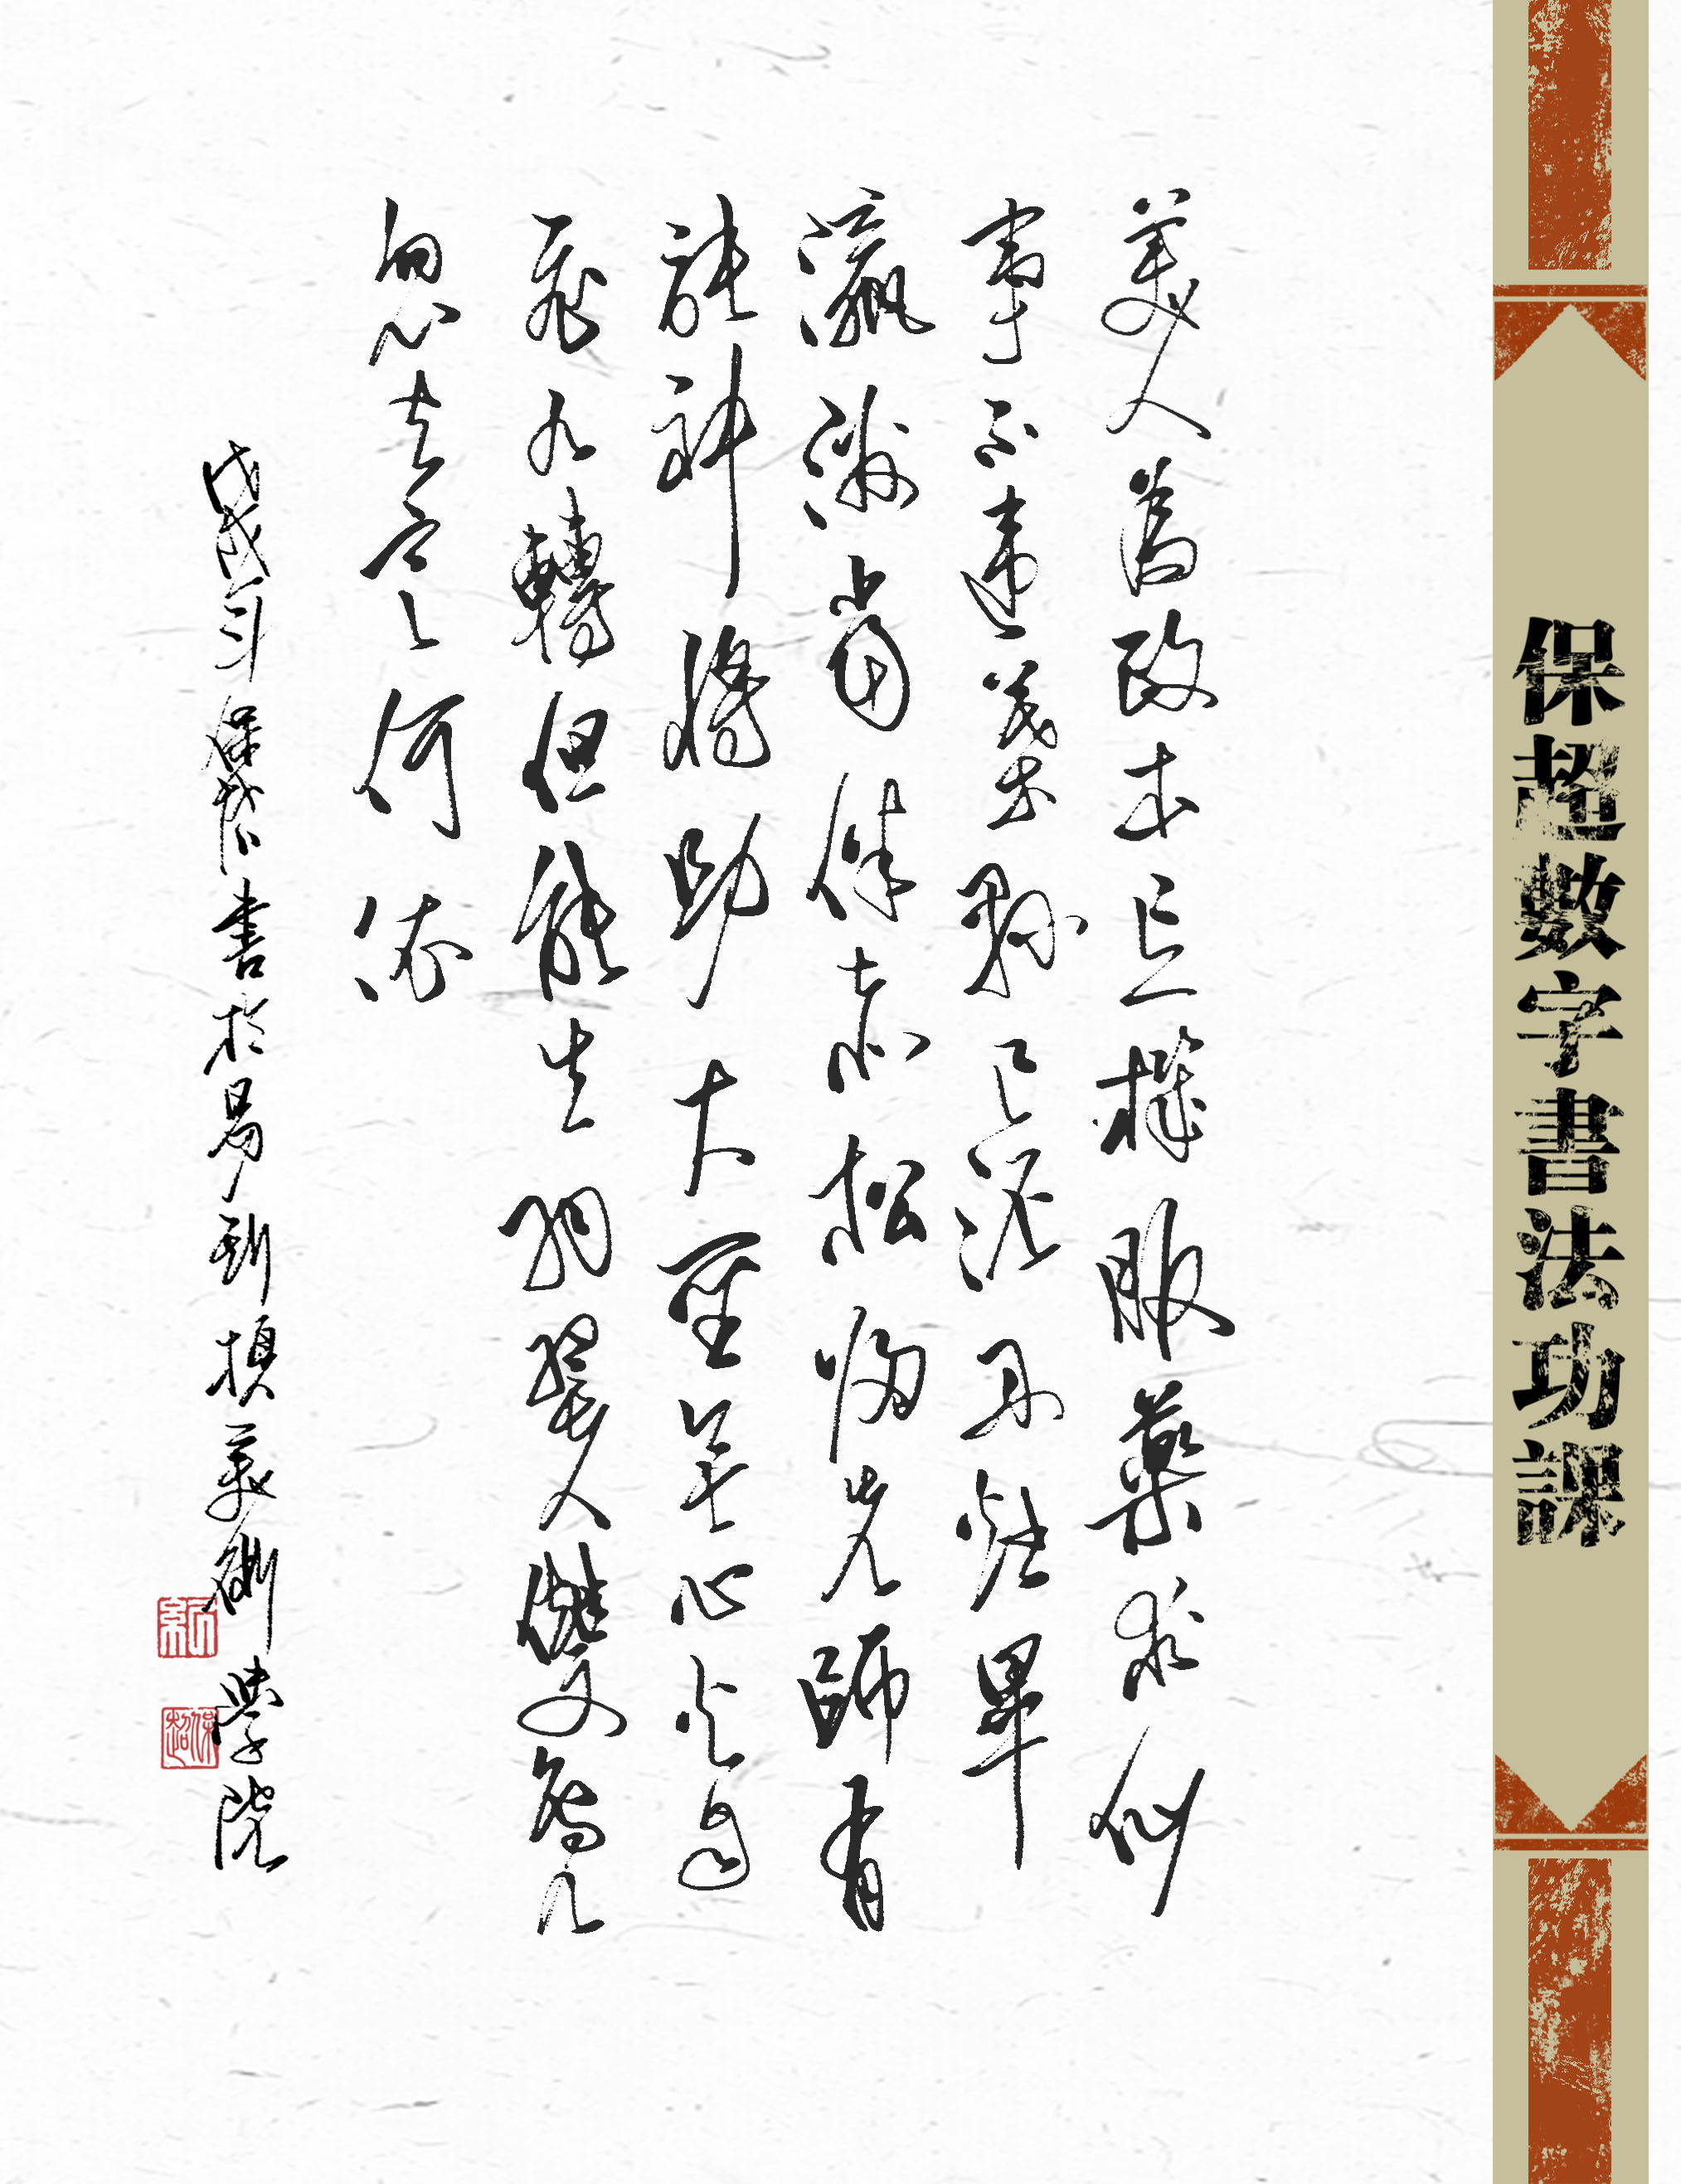 保超數字書法功課
美人為政本忘機服藥求仙
事不違葉縣已泥丹灶畢
瀛洲當伴赤松歸先師有
訣神將助大聖無心火自
飛九轉但能生羽翼雙鳧
忽去定何依
戊戌年保超書於易斯頓美術學院
保超